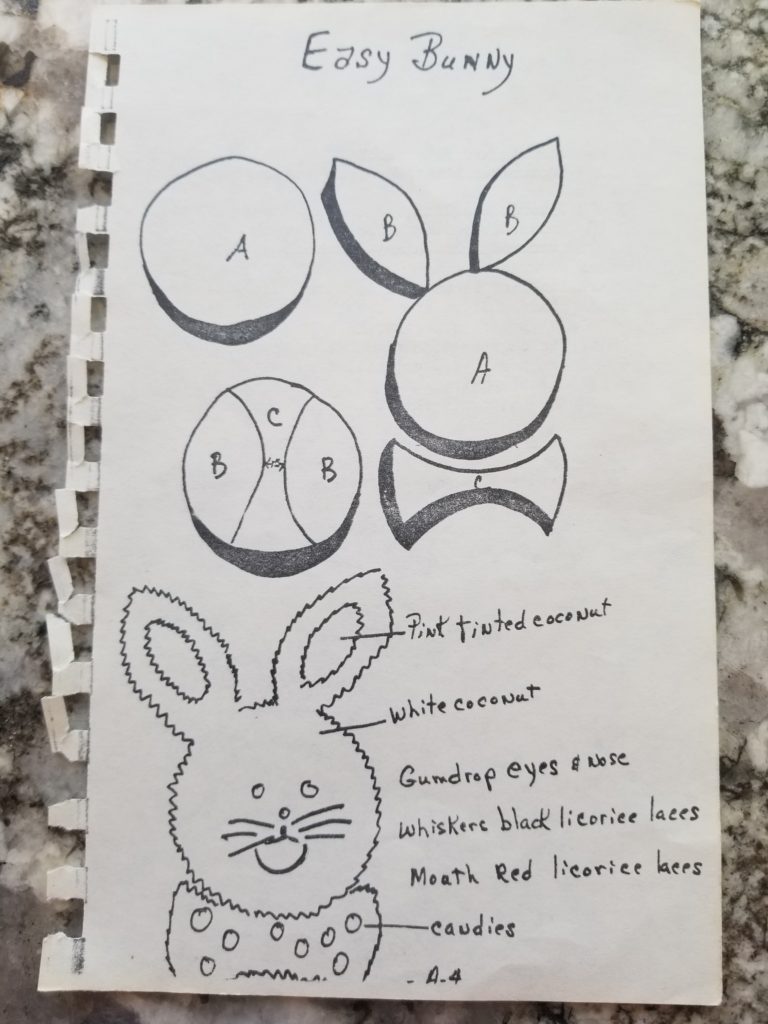 Easy Bunny
A
B
B
A
C
B
B
C
Pink tinted coconut
White coconut
Gumdrop eyes & Nose
Whiskers black licorice laces
Mouth Red licorice laces
candies
- A-4